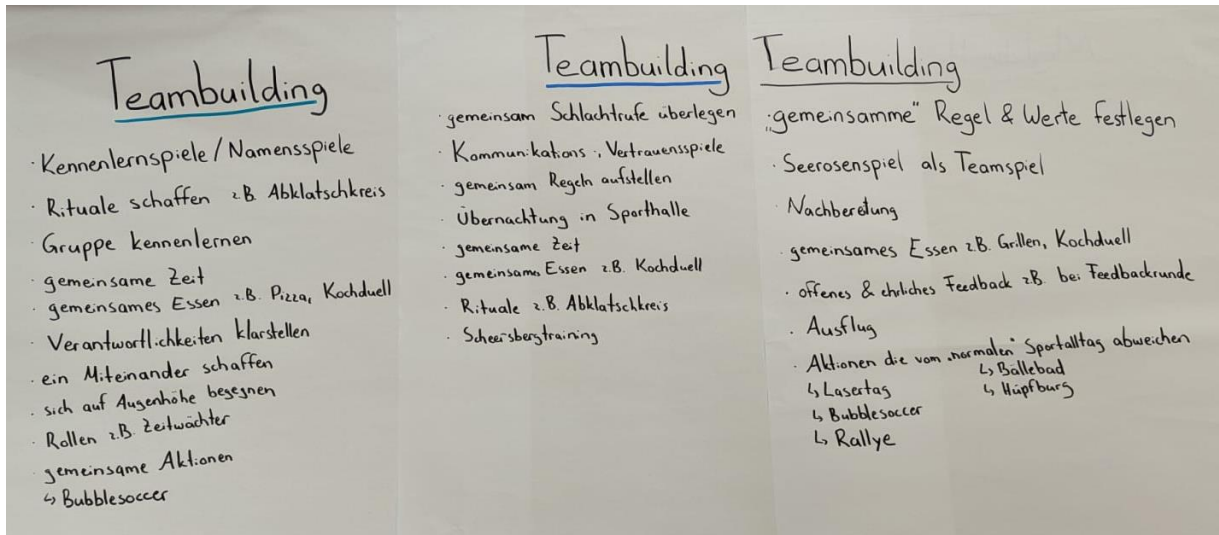 Teambuilding
· Kennenlernspiele / Namensspiele
· Rituale schaffen z.B. Abklatschkreis
· Gruppe kennenlernen
· gemeinsame Zeit
· gemeinsames Essen z.B. Pizza, Kochduell
· Verantwortlichkeiten klarstellen
· ein Miteinander schaffen
· sich auf Augenhöhe begegnen
· Rollen z.B. Zeitwächter
· gemeinsame Aktionen
↳ Bubblesoccer
Teambuilding
· gemeinsam Schlachtrufe überlegen
· Kommunikations-, Vertrauensspiele
· gemeinsam Regeln aufstellen
· Übernachtung in Sporthalle
· gemeinsame Zeit
· gemeinsames Essen z.B. Kochduell
· Rituale z.B. Abklatschkreis
· Scheersbergtraining
Teambuilding
· „gemeinsamme“ Regel & Werte festlegen
· Seerosenspiel als Teamspiel
· Nachbereitung
· gemeinsames Essen z.B. Grillen, Kochduell
· offenes & ehrliches Feedback z.B. bei Feedbackrunde
· Ausflug
· Aktionen die vom „normalen“ Sportalltag abweichen
↳ Lasertag ↳ Bällebad
↳ Bubblesoccer ↳ Hüpfburg
↳ Rallye